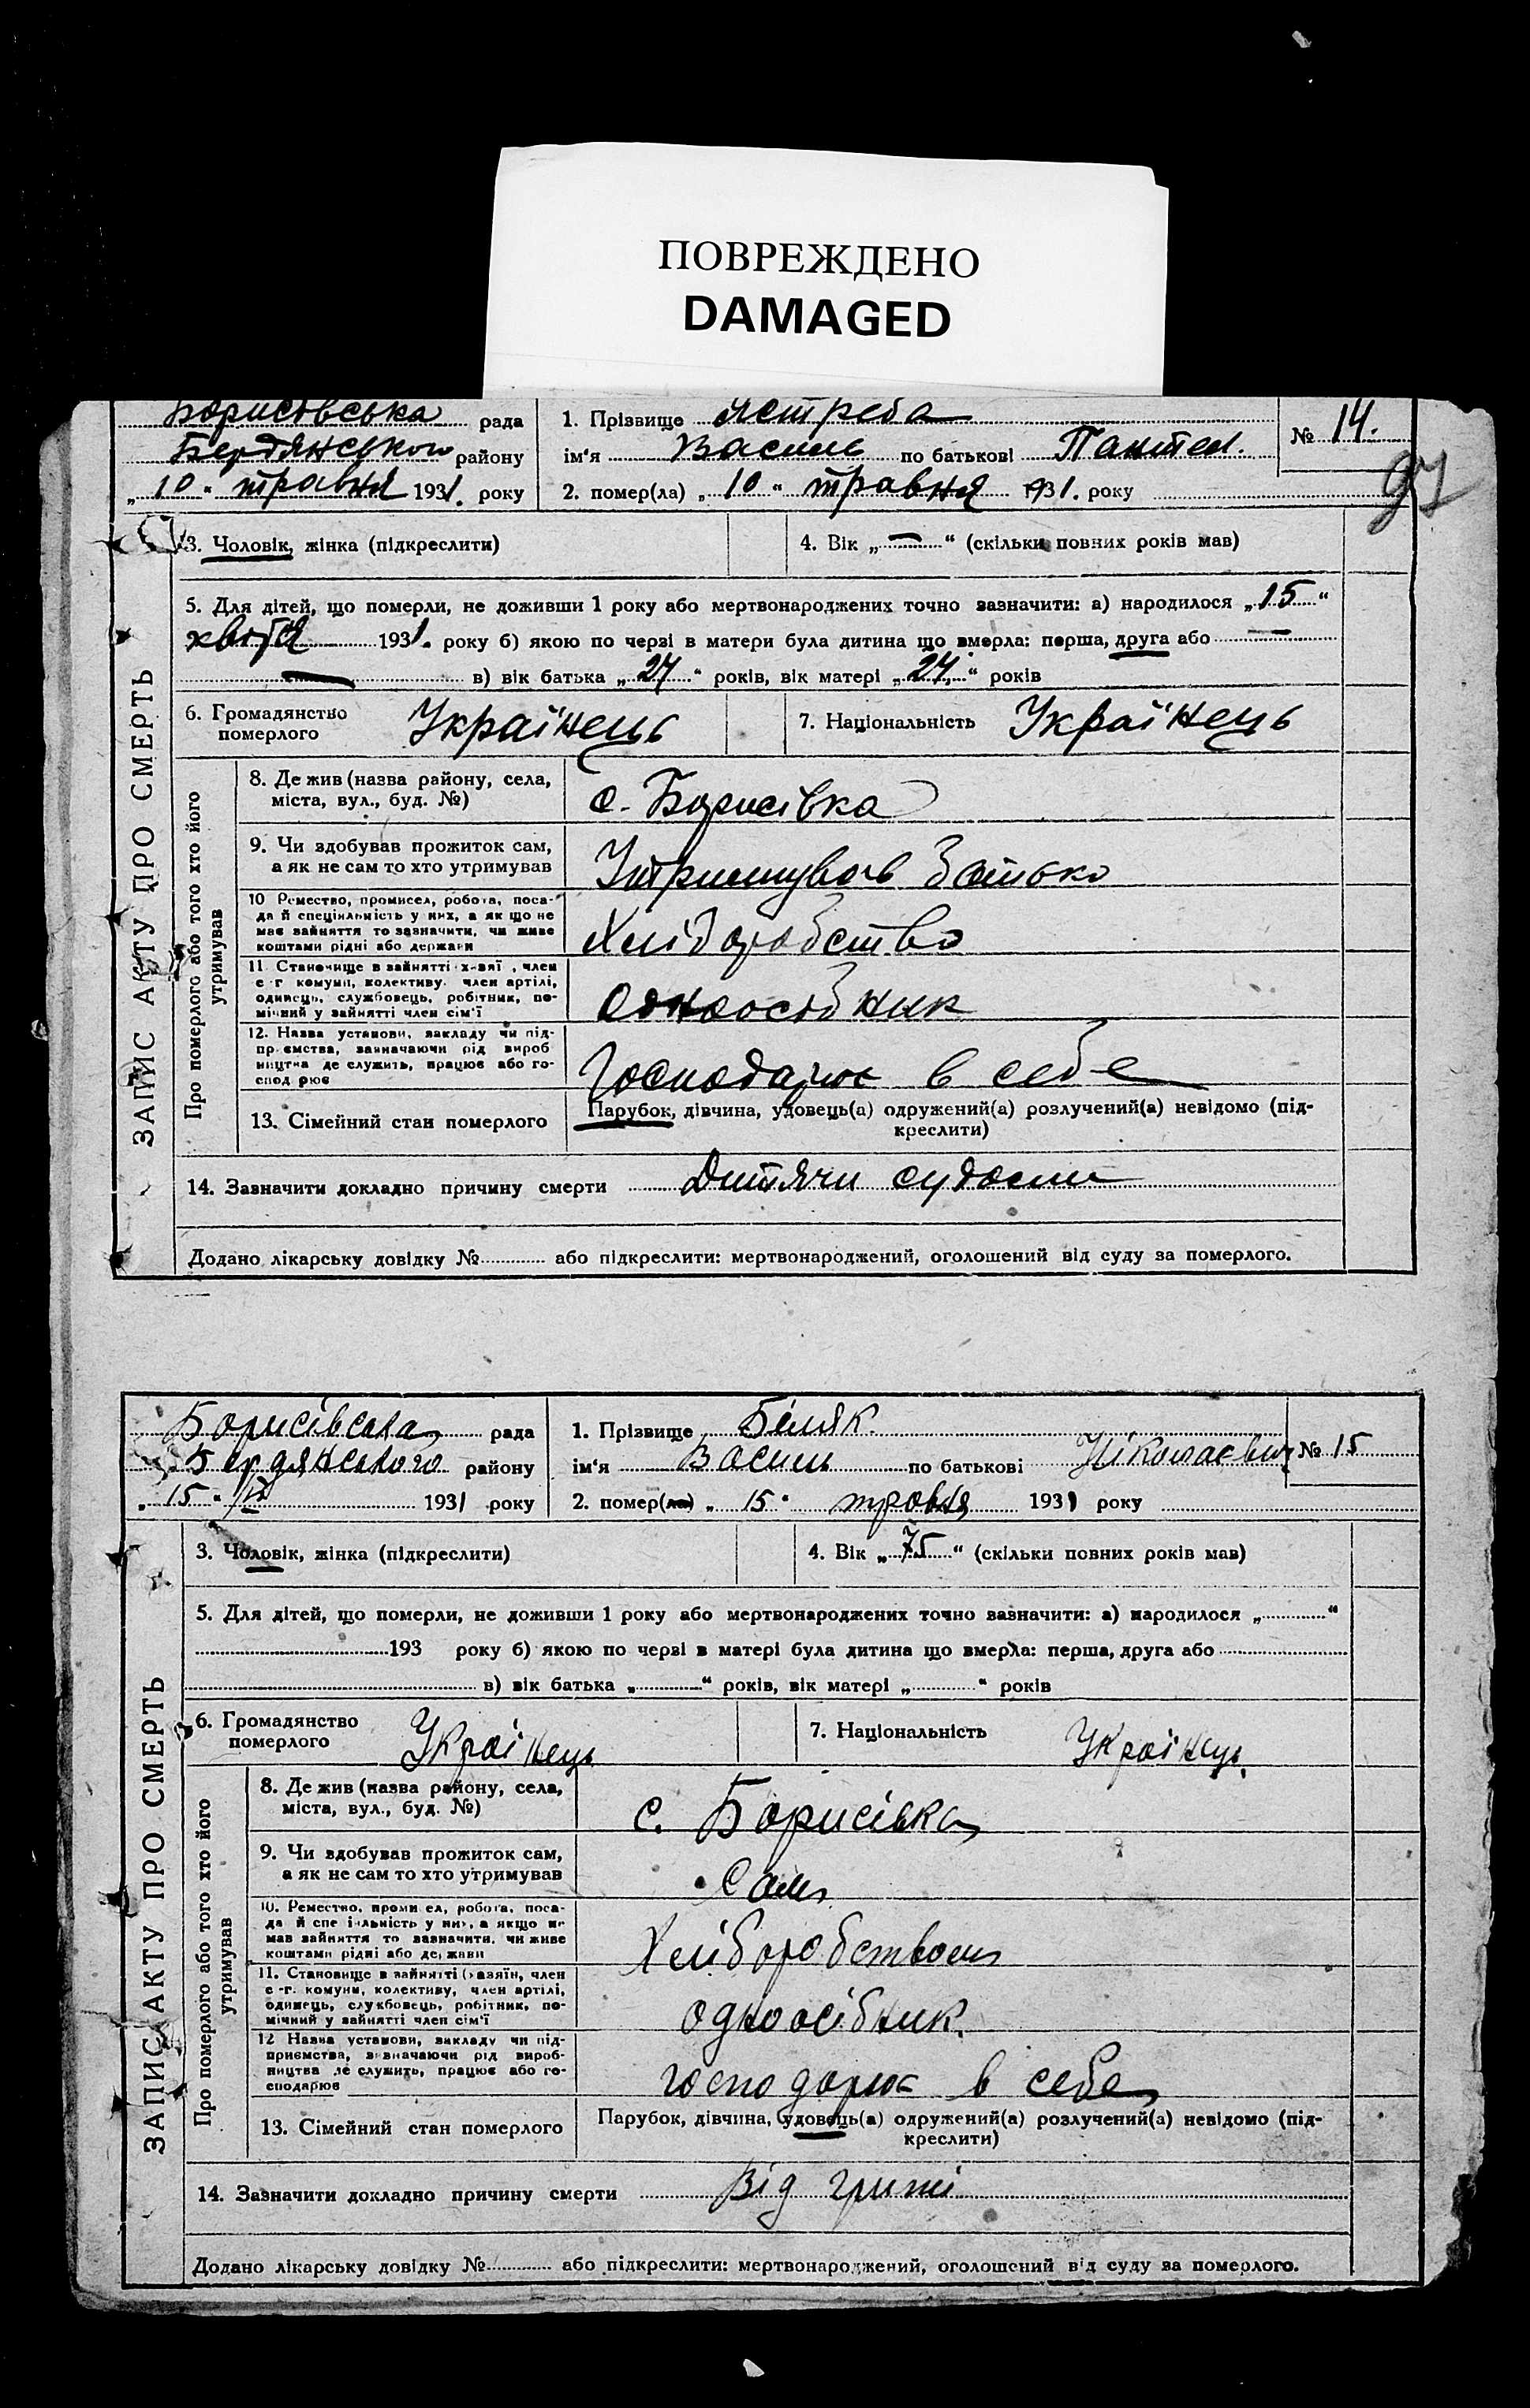 ПОВРЕЖДЕНО
DAMAGED
Борисовська рада
Бердянського району
„ 10 “ травня 1931. року
1. Прізвище Ястреба
ім‘я Василь по батькові Пантел.
2. помер(ла) „ 10 “ травня 1931. року
№ 14.
97
ЗАПИС АКТУ ПРО СМЕРТЬ
3. Чоловік, жінка (підкреслити)
4. Вік „ — “ (скільки повних років мав)
5. Для дітей, що померли, не доживши 1 року або мертвонароджених точно зазначити: а) народилося „ 15 “
квітня 1931. року б) якою по черзі в матери була дитина що вмерла: перша, друга або —
— в) вік батька „ 27 “ років, вік матері „ 24. “ років
6. Громадянство
померлого
Українець
7. Національність Українець
Про померлого або того хто його
утримував
8. Де жив (назва району, села,
міста, вул., буд. №)
с. Борисівка
9. Чи здобував прожиток сам,
а як не сам то хто утримував
Утримував батько
10 Ремество, промисел, робота, поса-
да й спеціяльність у них, а як що не
має зайняття то зазначити, чи живе
коштами рідні або держави
Хліборобство
11. Становище в зайнятті х-зяї , член
с-г комуни, колективу, член артілі,
одинець, службовець, робітник, по-
мічний у зайнятті член сім‘ї
Одноосібник
12. Назва установи, закладу чи під-
пр ємства, зазначаючи рід вироб
ництва де служить, працює або го-
спод рює
Господарює в себе
13. Сімейний стан померлого
Парубок, дівчина, удовець(а) одружений(а) розлучений(а) невідомо (під-
креслити)
14. Зазначити докладно причину смерти Дитячи судоми
Додано лікарську довідку № або підкреслити: мертвонароджений, оголошений від суду за померлого.
Борисівська рада
Бердянського району
„ 15 “ V 1931 року
1. Прізвище Біляк.
ім‘я Василь по батькові Ніколаєвич
2. помер(ла) „ 15 “ травня 1931 року
№ 15
ЗАПИС АКТУ ПРО СМЕРТЬ
3. Чоловік, жінка (підкреслити)
4. Вік „ 75 “ (скільки повних років мав)
5. Для дітей, що померли, не доживши 1 року або мертвонароджених точно зазначити: а) народилося „ “
193 року б) якою по черзі в матері була дитина що вмерла: перша, друга або
в) вік батька „ “ років, вік матері „ “ років
6. Громадянство
померлого
Українець
7. Національність Українець.
Про померлого або того хто його
утримував
8. Де жив (назва району, села,
міста, вул., буд. №)
с. Борисівка
9. Чи здобував прожиток сам,
а як не сам то хто утримував
Сам
10. Ремество, проми ел, робота, поса-
да й спе іяльність у них, а якщо не
мав зайняття то зазначити, чи живе
коштами рідні або держави
Хліборобством
11. Становище в зайнятті (хазяїн, член
с-г. комуни, колективу, член артілі,
одинець, службовець, робітник, по-
мічний у зайнятті член сім‘ї
одноосібник.
12 Назва установи, закладу чи під-
приємства, зазначаючи рід вироб-
ництва де служить, працює або го-
сподарює
господарює в себе
13. Сімейний стан померлого
Парубок, дівчина, удовець(а) одружений(а) розлучений(а) невідомо (під-
креслити)
14. Зазначити докладно причину смерти Від грижі
Додано лікарську довідку № або підкреслити: мертвонароджений, оголошений від суду за померлого.